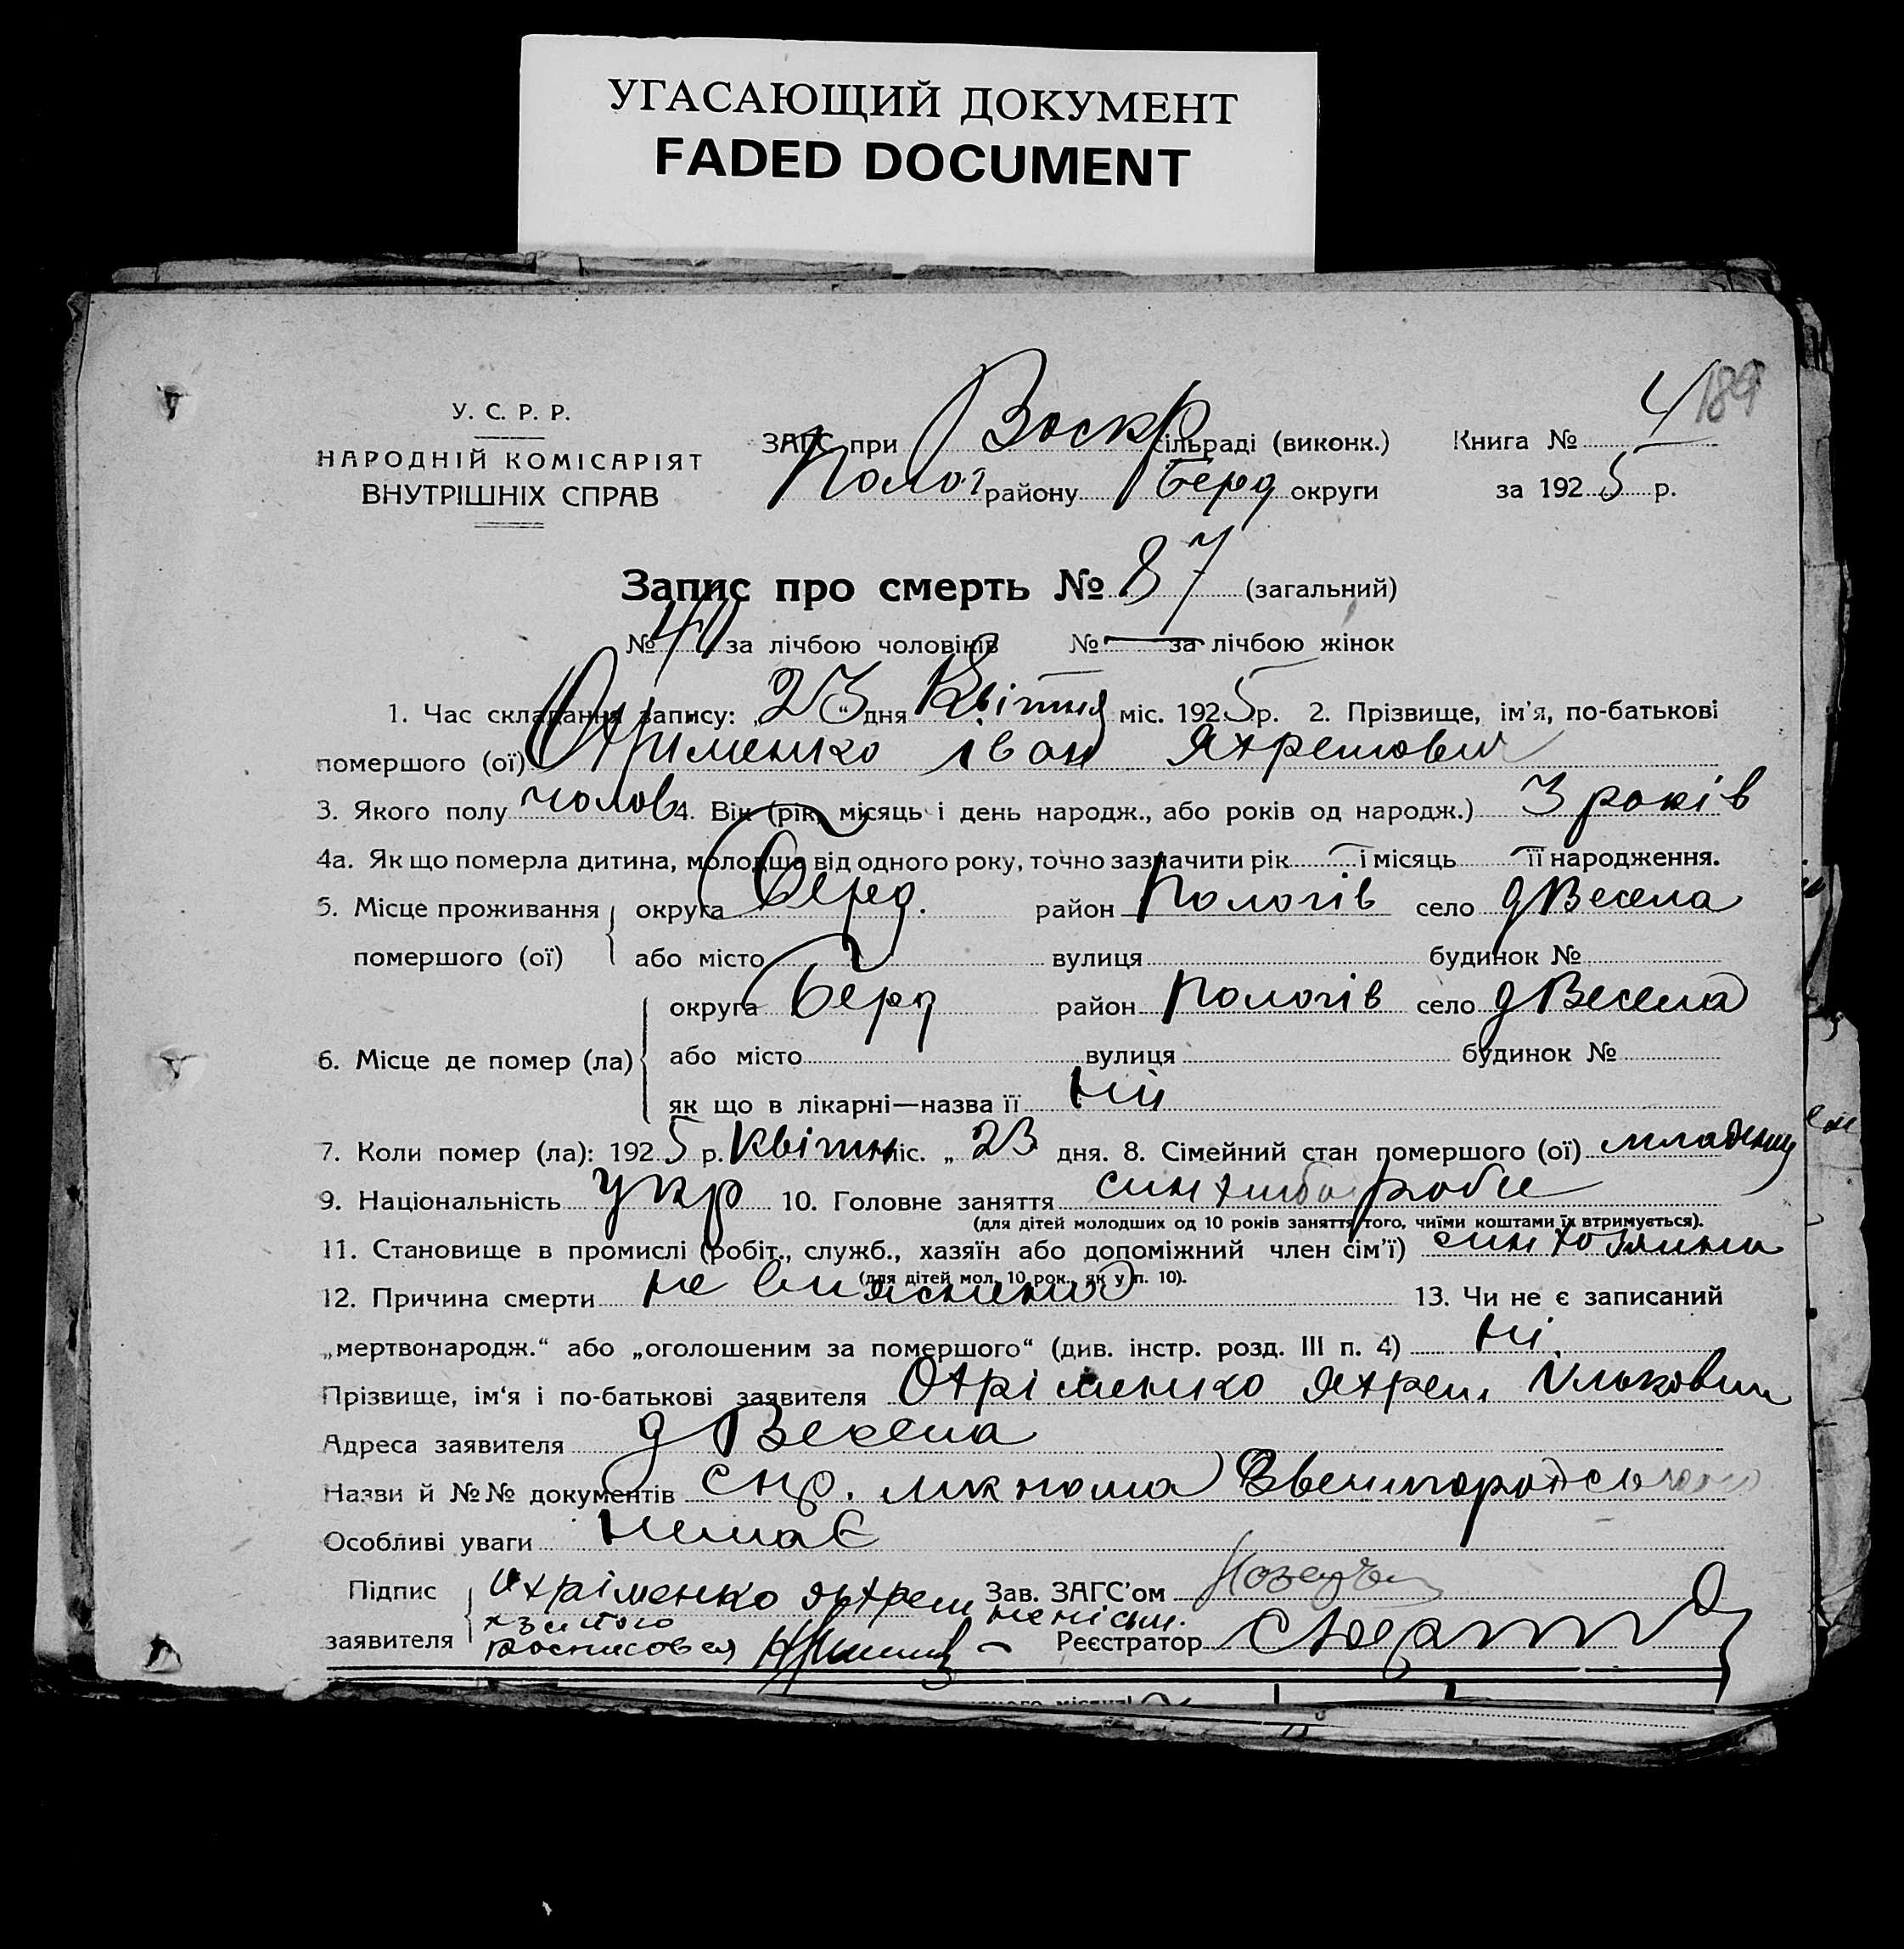 УГАСАЮЩИЙ ДОКУМЕНТ
FADED DOCUMENT
189
У. С. Р. Р.
НАРОДНІЙ КОМІСАРІЯТ
ВНУТРІШНІХ СПРАВ
ЗАГС при Воскр сільраді (виконк.) Книга № 4
Полог району Берд округи за 1925 р.
Запис про смерть № 87 (загальний)
№ 40 за лічбою чоловіків № — за лічбою жінок
1. Час складання запису: „23“ дня Квітня міс. 1925 р. 2. Прізвище, ім'я, по-батькові
помершого (ої) Охріменко Іван Яхремович
3. Якого полу чолов 4. Вік (рік, місяць і день народж., або років од народж.) 3 років
4а. Як що померла дитина, молодша від одного року, точно зазначити рік — і місяць — її народження.
5. Місце проживання помершого (ої) округа Берд. район Пологів село д Весела
або місто вулиця будинок №
6. Місце де помер (ла) округа Берд район Пологів село д Весела
або місто вулиця будинок №
як що в лікарні—назва її ні
7. Коли помер (ла): 1925 р. Квітн міс. „23 дня. 8. Сімейний стан помершого (ої) младенец
9. Національність укр 10. Головне заняття син хлібороба
(для дітей молодших од 10 років заняття того, чиїми коштами їх втримується).
11. Становище в промислі (робіт., служб., хазяїн або допоміжний член сім'ї) син хозяина
(для дітей мол. 10 рок., як у п. 10).
12. Причина смерти не вияснена 13. Чи не є записаний
„мертвонародж.“ або „оголошеним за помершого“ (див. інстр. розд. III п. 4) ні.
Прізвище, ім'я і по-батькові заявителя Охріменко Яхрем Ількович
Адреса заявителя д Весела
Назви й №№ документів спр.
Особливі уваги немає
Підпис заявителя Охріменко Яхрем неписьм. Зав. ЗАГС'ом
росписовся Реєстратор